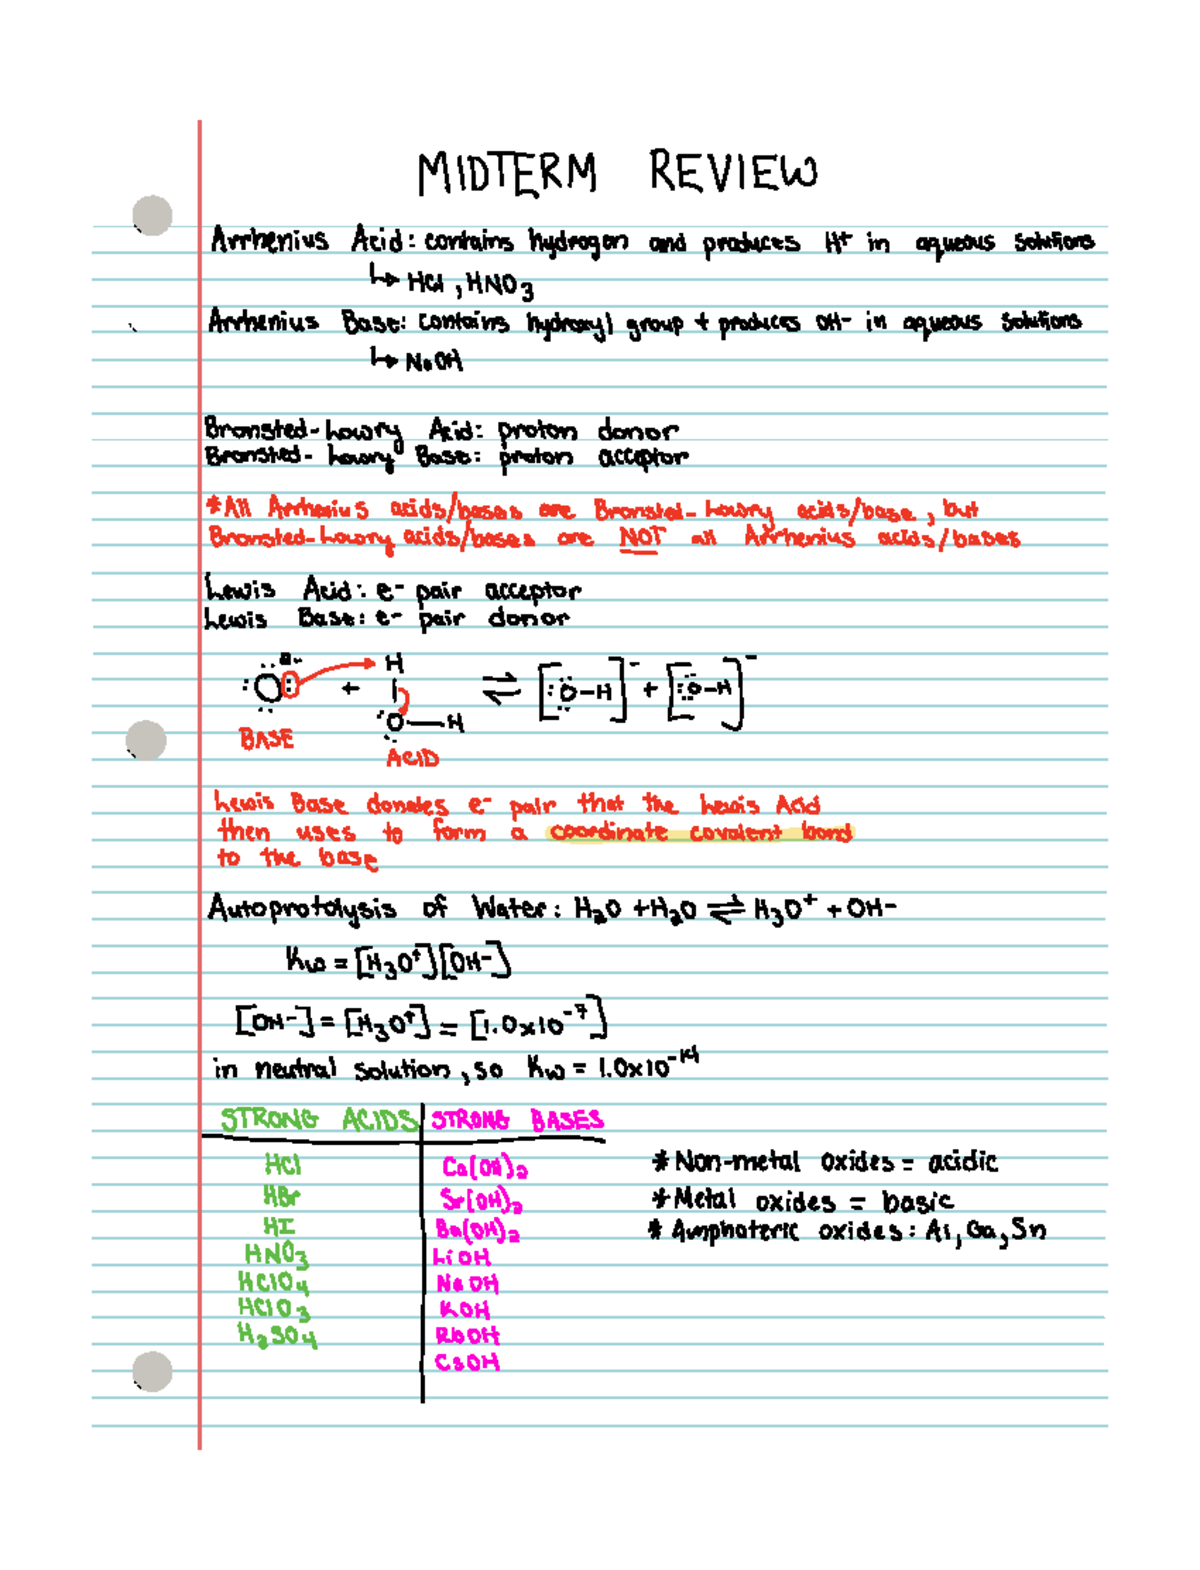 MIDTERM REVIEW
Arrhenius Acid: contains hydrogen and produces H⁺ in aqueous solutions
↳ HCl, HNO₃
Arrhenius Base: contains hydroxyl group + produces OH⁻ in aqueous solutions
↳ NaOH
Bronsted-Lowry Acid: proton donor
Bronsted-Lowry Base: proton acceptor
*All Arrhenius acids/bases are Bronsted-Lowry acids/base, but
Bronsted-Lowry acids/bases are NOT all Arrhenius acids/bases
Lewis Acid: e⁻ pair acceptor
Lewis Base: e⁻ pair donor
:O: 2- + H | O—H ⇌ [:O–H]⁻ + [:O–H]⁻
BASE
ACID
Lewis Base donates e⁻ pair that the Lewis Acid
then uses to form a coordinate covalent bond
to the base
Autoprotolysis of Water: H₂O + H₂O ⇌ H₃O⁺ + OH⁻
Kw = [H₃O⁺][OH⁻]
[OH⁻] = [H₃O⁺] = [1.0x10⁻⁷]
in neutral solution, so Kw = 1.0x10⁻¹⁴
STRONG ACIDS STRONG BASES
HCl Ca(OH)₂ *Non-metal oxides = acidic
HBr Sr(OH)₂ *Metal oxides = basic
HI Ba(OH)₂ * Amphoteric oxides: Al, Ga, Sn
HNO₃ LiOH
HClO₄ NaOH
HClO₃ KOH
H₂SO₄ RbOH
CsOH